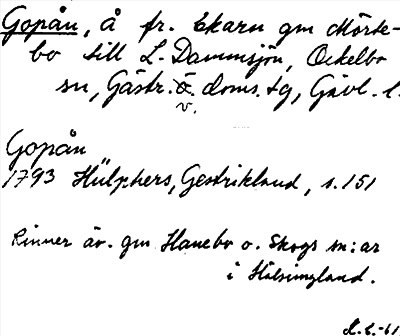 Gopån, å fr. Ekarn gm Mörte-
bo till L. Dammsjön, Ockelbo
sn, Gästr. ö. doms. tg, Gävl. l.
v.
Gopån
1793 Hülphers, Gestrikland, s. 151
Rinner äv. gm Hanebo o. Skogs sn:ar
i Hälsingland.